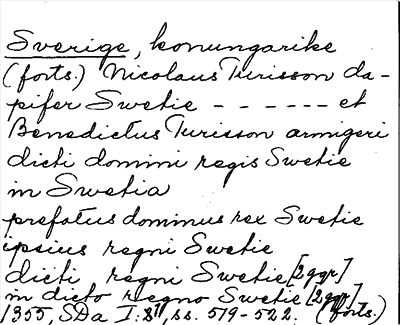 Sverige, konungarike
(forts.) Nicolaus Turisson da-
pifer Swetie - - - - - - et
Benedictus Turisson armigeri
dicti domini regis Swetie
in Swetia
prefatus dominus rex Swetie
ipsius regni Swetie
dicti regni Swetie [2 ggr]
in dicto regno Swetie [2 ggr]
1355, SDa I:8, ss. 519-522. (forts.)